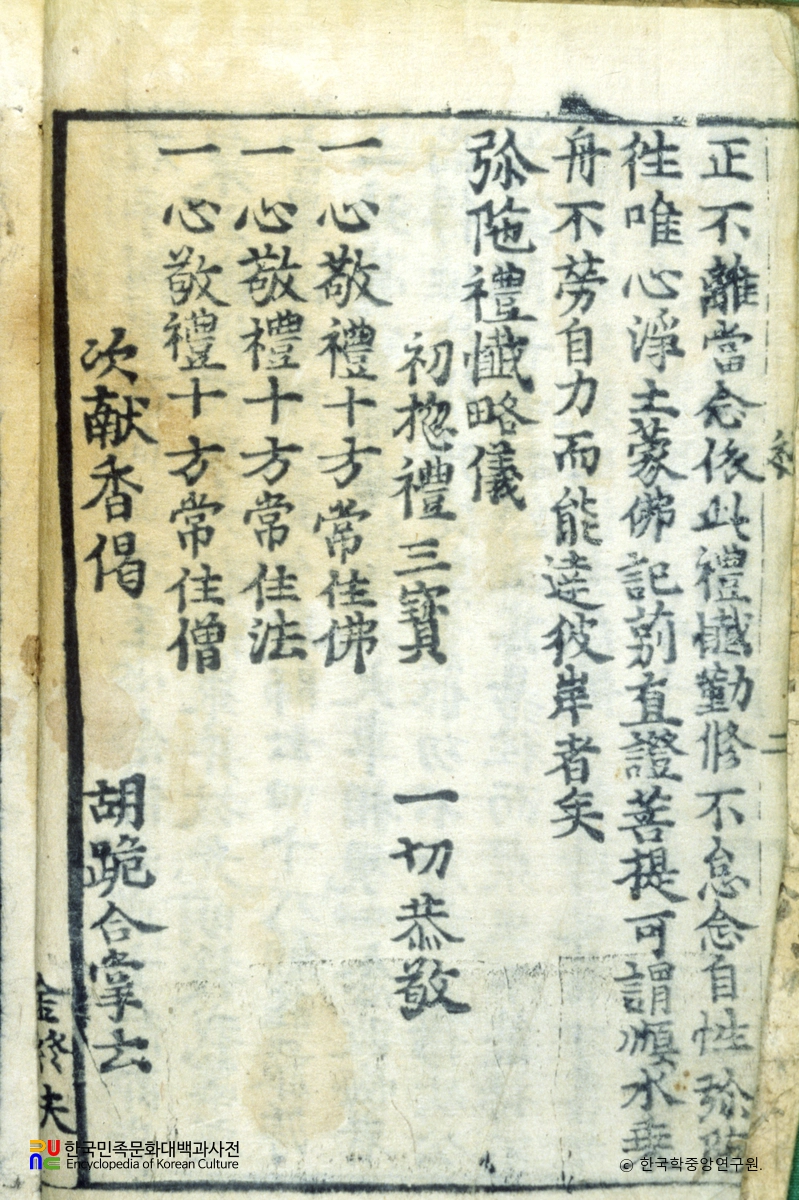 正不離當念依此禮懺勤修不怠念自性弥陁
徃唯心淨土蒙佛記莂直證菩提可謂順水
舟不劳自力而能逹彼岸者矣
弥陁禮懺略儀
初揔禮三寶 一切恭敬
一心敬禮十方常住佛
一心敬禮十方常住法
一心敬禮十方常住僧
次献香偈 胡跪合掌云
한국민족문화대백과사전
Encyclopedia of Korean Culture
© 한국학중앙연구원.